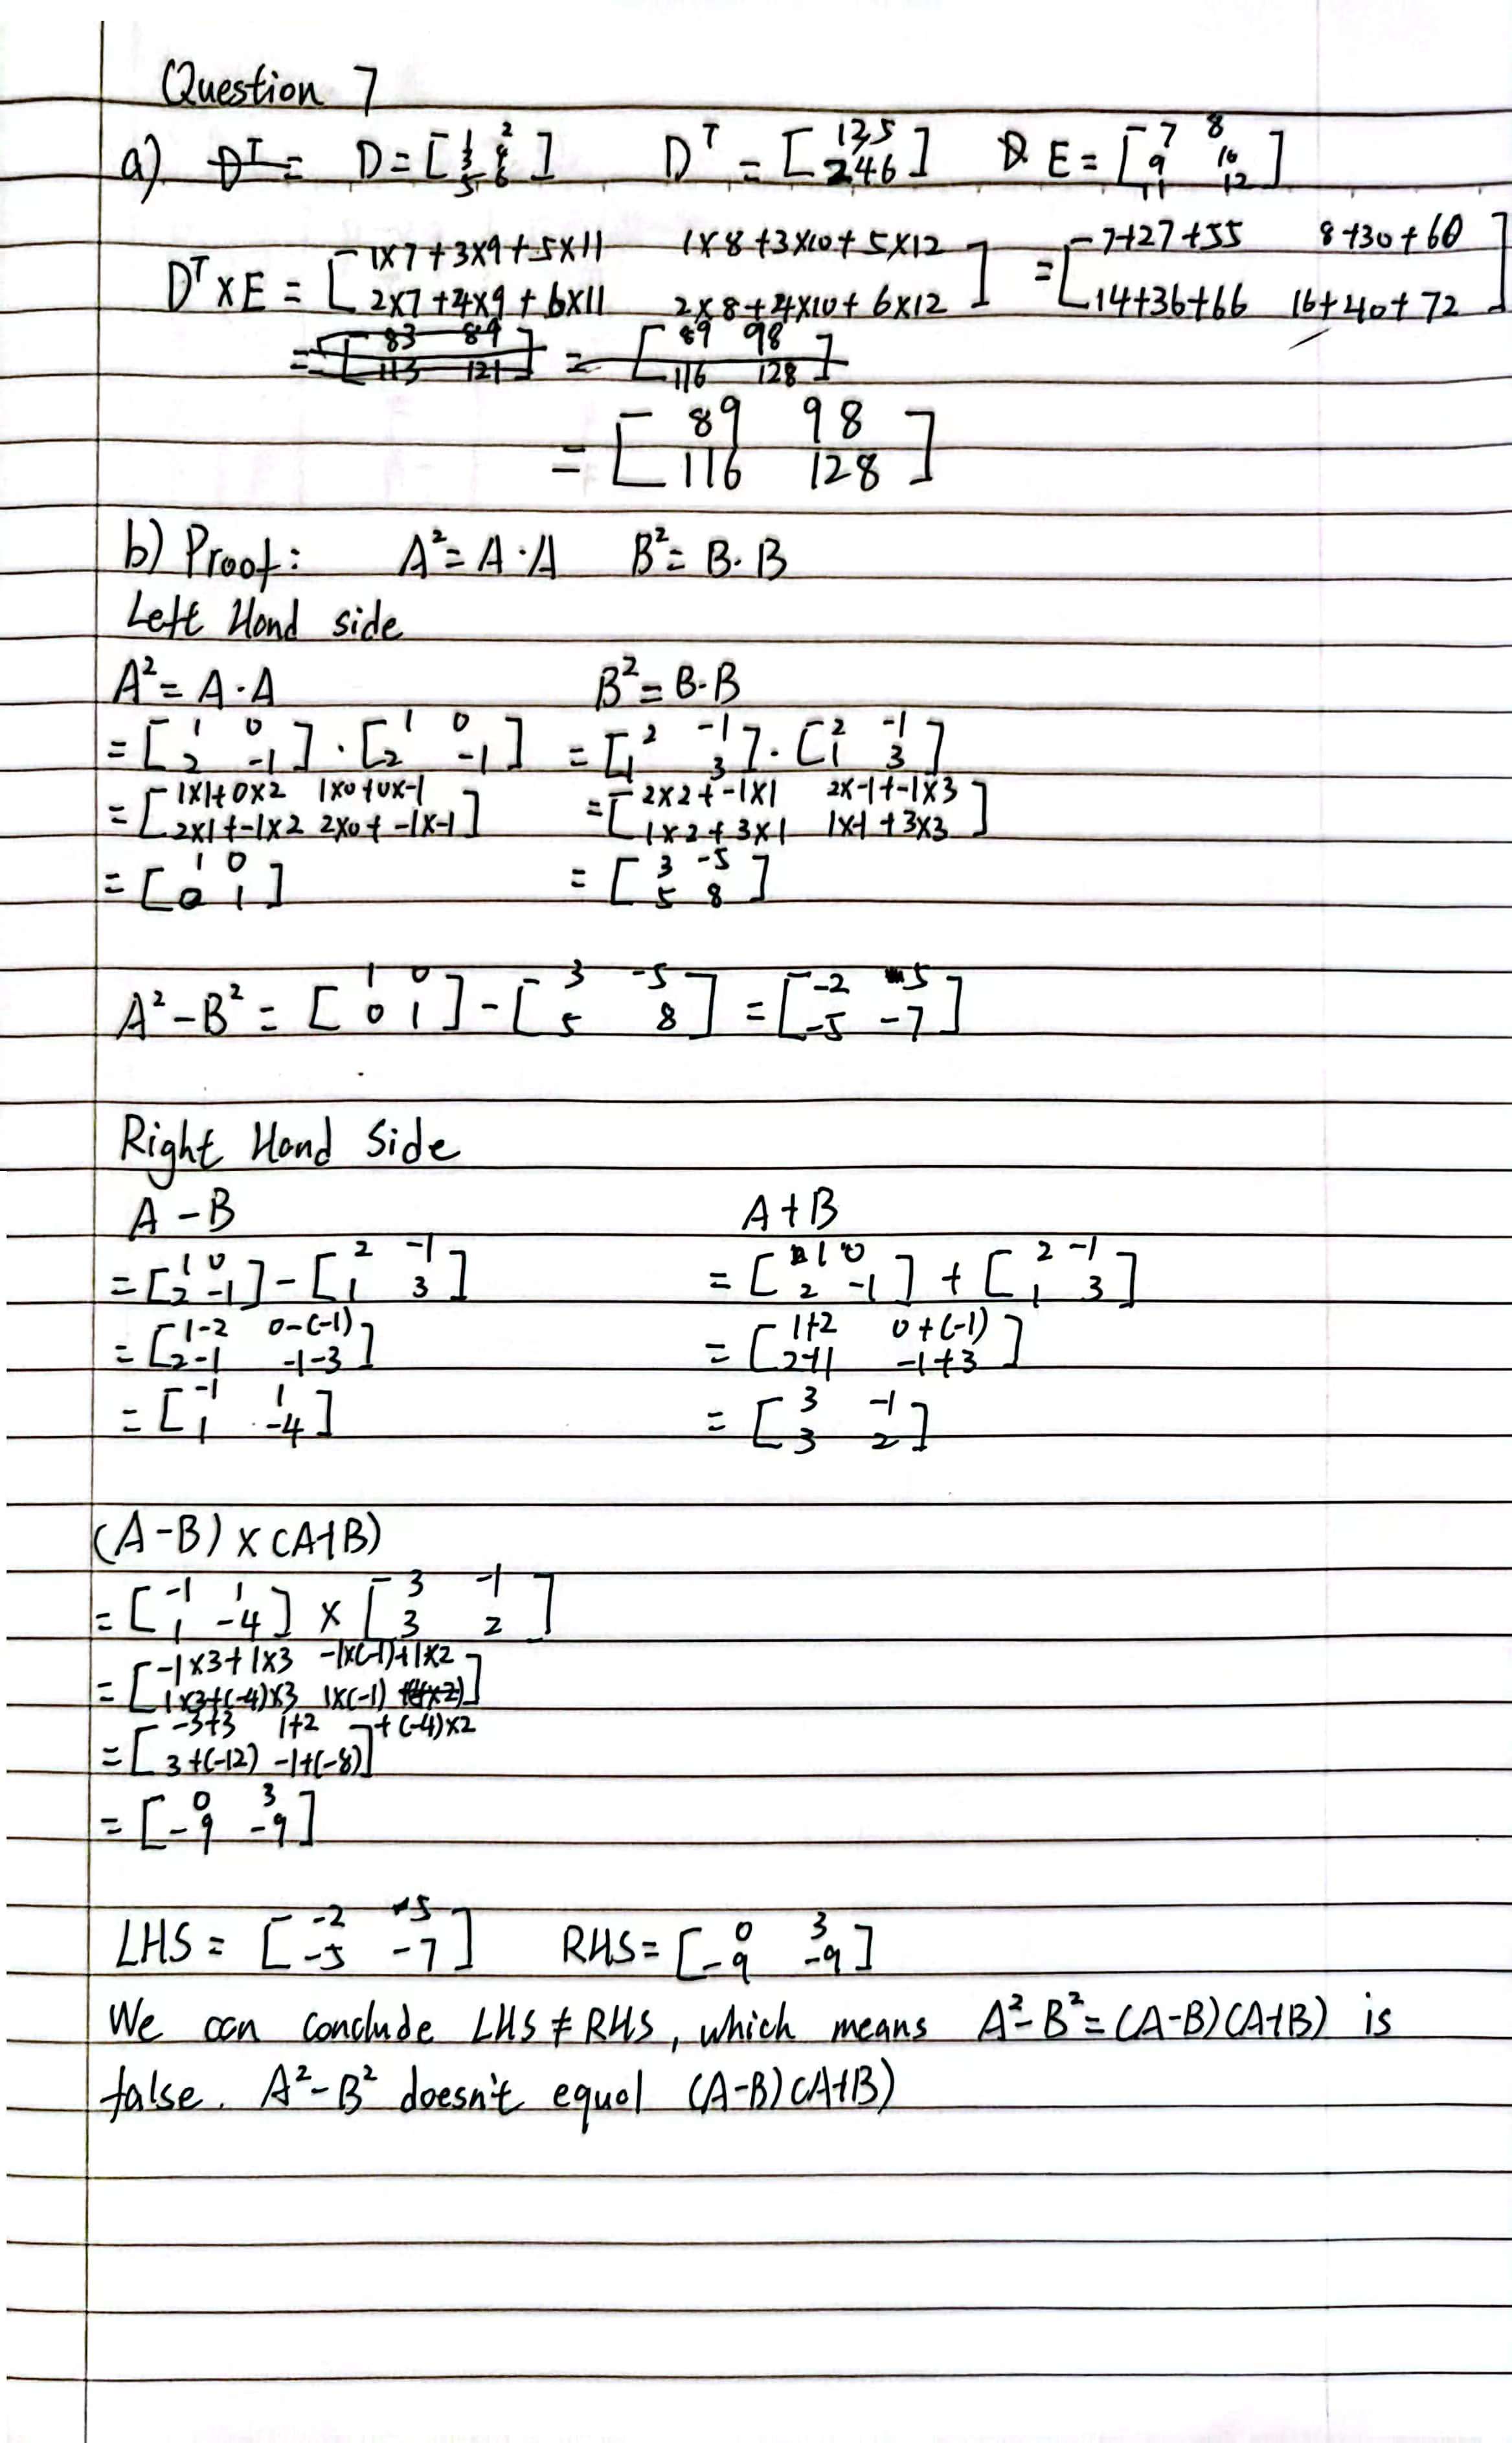 Question 7
a) D^T = D = [1 2; 3 4; 5 6] D^T = [1 3 5; 2 4 6] D E = [7 8; 9 10; 11 12]
D^T × E = [1×7+3×9+5×11 1×8+3×10+5×12; 2×7+4×9+6×11 2×8+4×10+6×12] = [7+27+55 8+30+60; 14+36+66 16+40+72]
= [83 89; 113 121] = [89 98; 116 128]
= [89 98; 116 128]
b) Proof: A² = A·A B² = B·B
Left Hand side
A² = A·A B² = B·B
= [1 0; 2 -1]·[1 0; 2 -1] = [2 -1; 1 3]·[2 -1; 1 3]
= [1×1+0×2 1×0+0×-1; 2×1+-1×2 2×0+-1×-1] = [2×2+-1×1 2×-1+-1×3; 1×2+3×1 1×-1+3×3]
= [1 0; 0 1] = [3 -5; 5 8]
A²-B² = [1 0; 0 1] - [3 -5; 5 8] = [-2 5; -5 -7]
Right Hand Side
A-B A+B
= [1 0; 2 -1] - [2 -1; 1 3] = [1 0; 2 -1] + [2 -1; 1 3]
= [1-2 0-(-1); 2-1 -1-3] = [1+2 0+(-1); 2+1 -1+3]
= [-1 1; 1 -4] = [3 -1; 3 2]
(A-B)×(A+B)
= [-1 1; 1 -4] × [3 -1; 3 2]
= [-1×3+1×3 -1×(-1)+1×2; 1×3+(-4)×3 1×(-1)+(-4)×2]
= [-3+3 1+2; 3+(-12) -1+(-8)]
= [0 3; -9 -9]
LHS = [-2 5; -5 -7] RHS = [0 3; -9 -9]
We can conclude LHS ≠ RHS, which means A²-B²=(A-B)(A+B) is
false. A²-B² doesn't equal (A-B)(A+B)